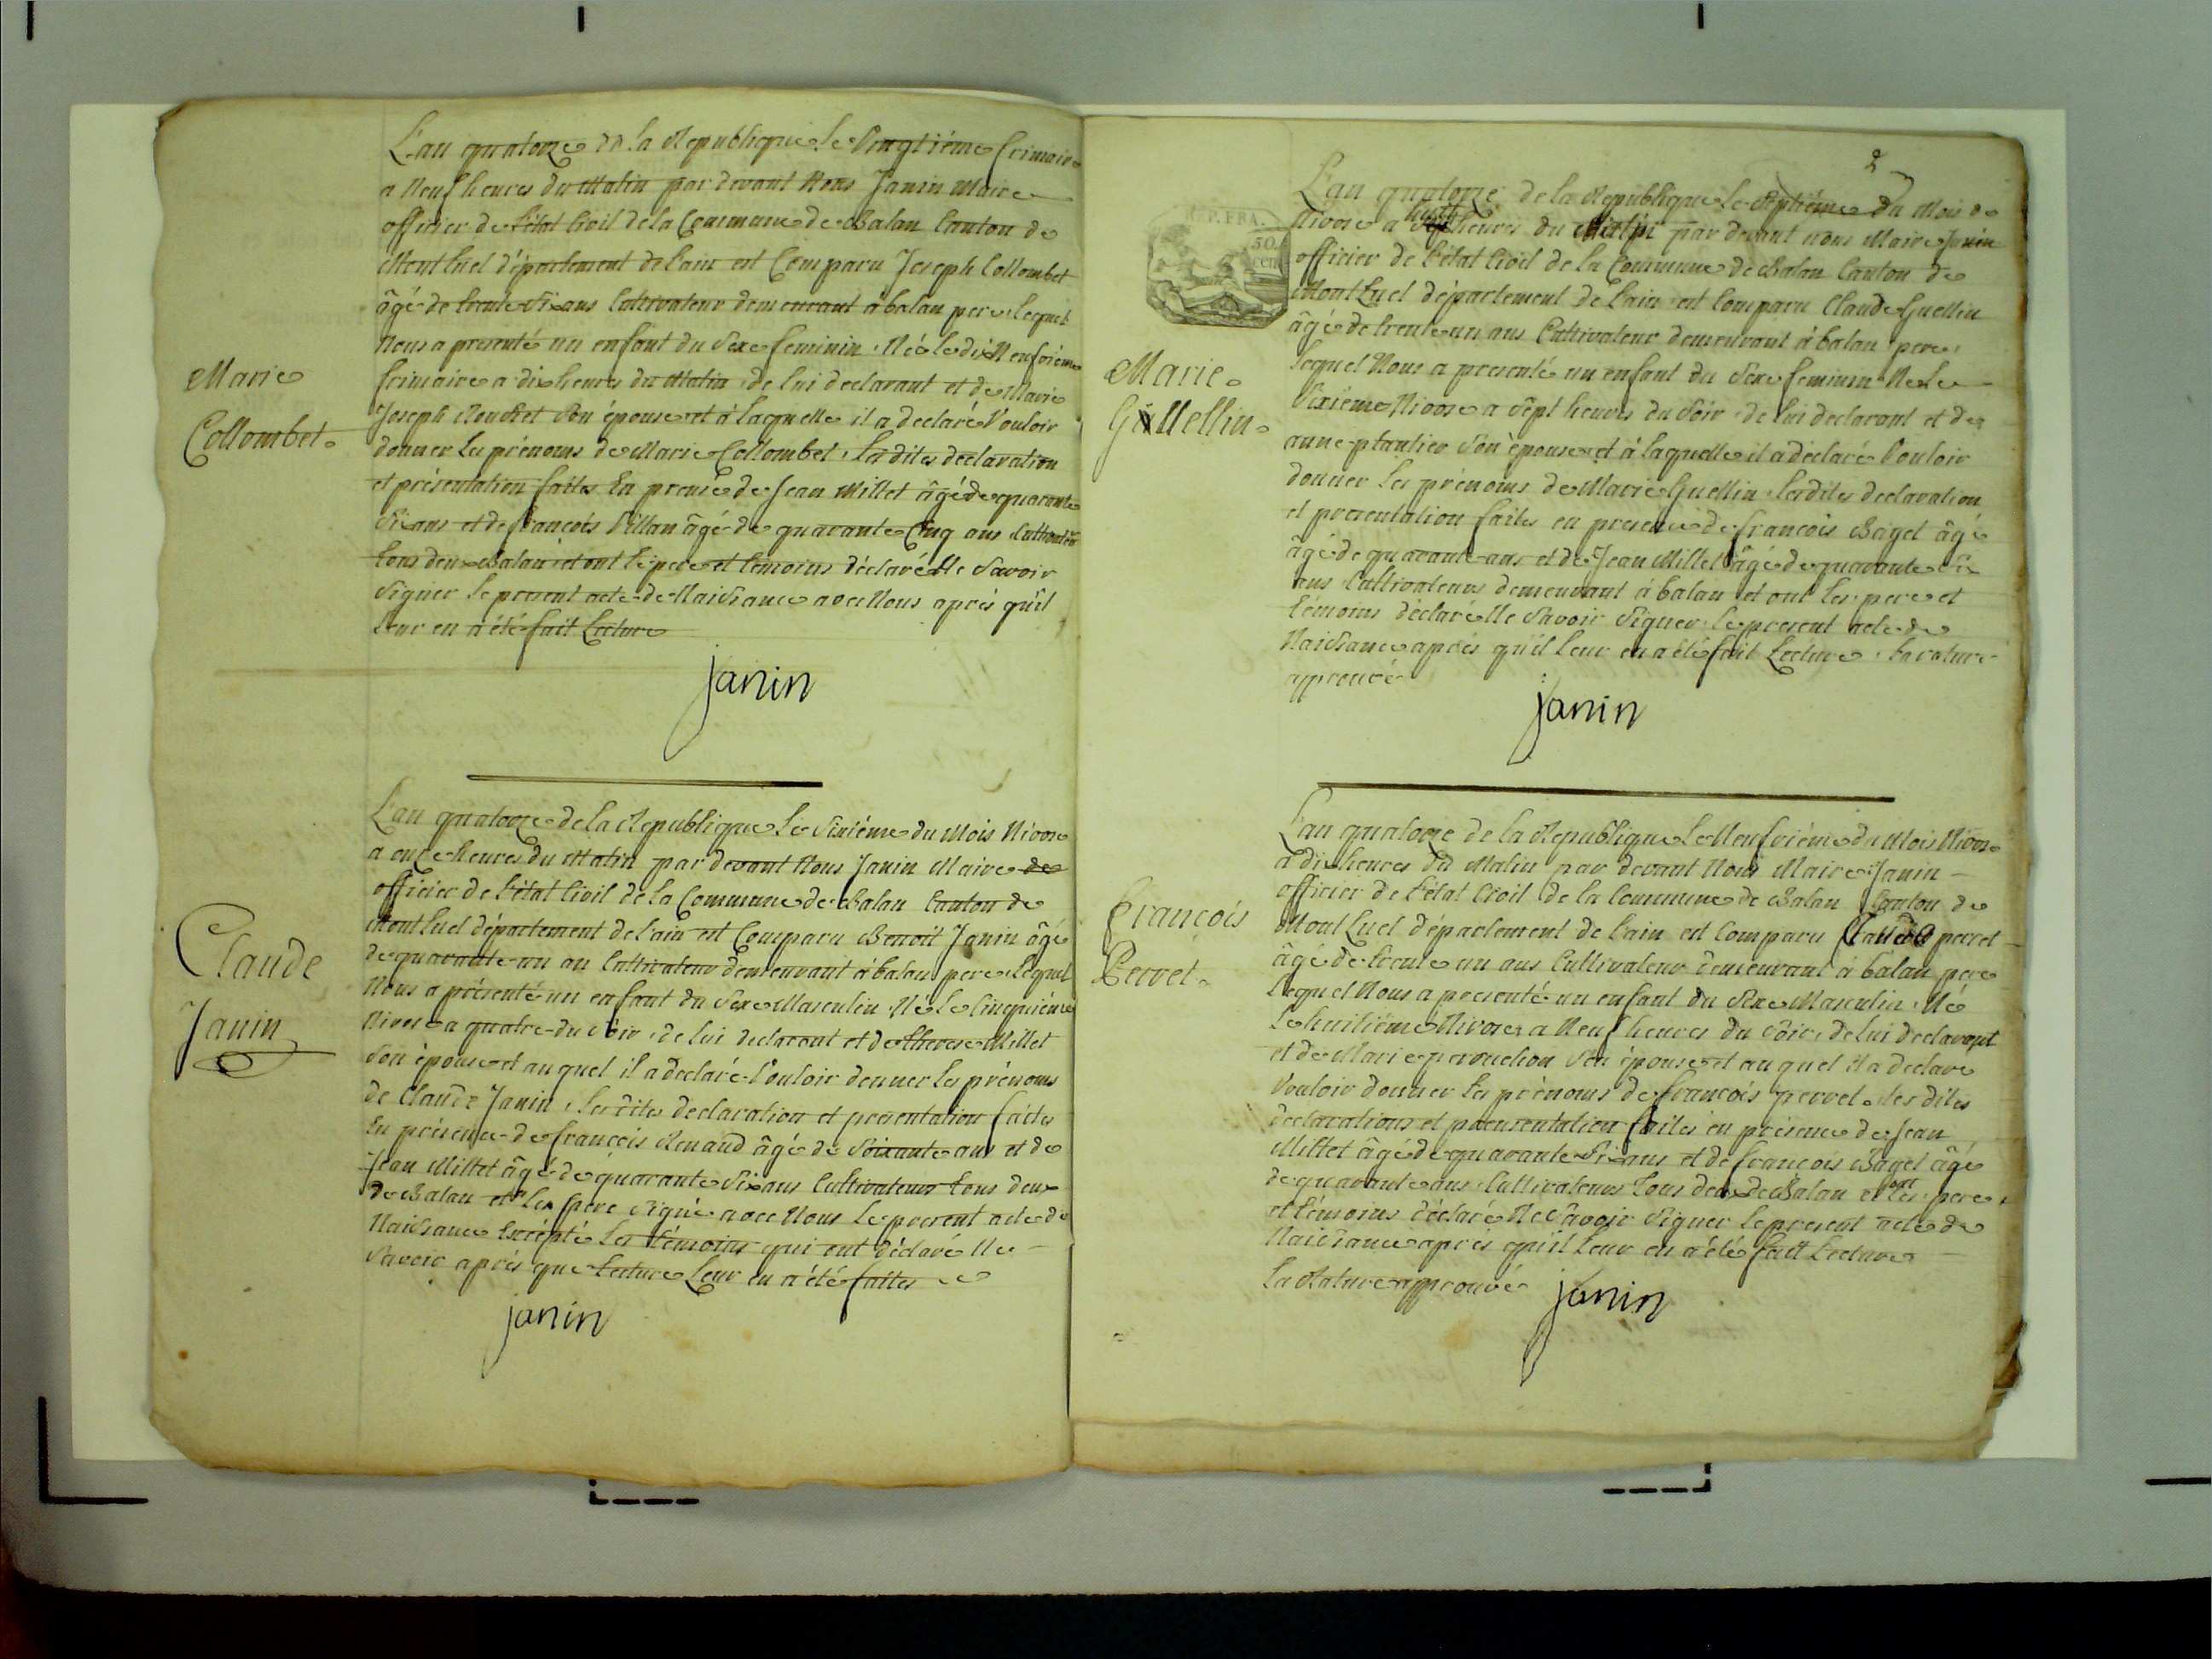 Marie
Collombet.
L'an quatorze de la Republique le Vingtiéme frimaire
a Neuf heures du Matin par devant Nous Janin Maire
officier de l'état Civil de la Commune de Balan Canton de
Montluel département de l'ain est Comparu Joseph Collombet
âgé de trente Six ans Cultivateur demeurant à balan pere lequel
Nous a presenté un enfant du Sexe feminin Né le dix Neufviéme
frimaire a dix heures du Matin de lui declarant et de Marie
Joseph Son épouse et à laquelle il a declaré Vouloir
donner les prénoms de Marie Collombet, les dites declaration
et présentation faites En presence de Jean Millet âgé de quarante
Six ans et de François Villan âgé de quarante Cinq ans Cultivateur
tous deux Balan et ont le pere et temoins déclaré Ne Savoir
Signer le present acte de Naissance avec Nous après qu'il
leur en a été fait Lecture
Janin
Claude
Janin
L'an quatorze de la Republique le Sixiéme du Mois Nivose
a onze heures du Matin par devant Nous Janin Maire de
officier de l'état Civil de la Commune de Balan Canton de
Montluel département de l'ain est Comparu Benoit Janin âgé
de quarante un an Cultivateur demeurant à balan pere lequel
Nous a présenté un enfant du Sexe Masculin Né le Cinquiéme
Nivose a quatre du Soir, de lui declarant et de therese Millet
Son épouse et auquel il a declaré Vouloir donner les prénoms
de Claude Janin, les dites declaration et presentation faites
En présence de françois Renaud âgé de Soixante ans et de
Jean Millet âgé de quarante Six ans Cultivateurs tous deux
de Balan et le père Signé avec Nous le present acte de
Naissance Excépté les témoins qui ont déclaré Ne
Savoir après que Lecture Leur en a été faites
Janin
2
REP. FRA.
50
cent
Marie
Guellin
L'an quatorze de la Republique le Septiéme du Mois de
huit
Nivose a heures du Matin par devant nous Maire Janin
officier de l'état Civil de la Commune de Balan Canton de
Mont Luel département de l'ain est Comparu Claude Guellin
âgé de trente un ans Cultivateur demeurant à balan pere,
lequel Nous a presenté un enfant du Sexe feminin Né le
Sixiéme Nivose a Sept heures du Soir de lui declarant et de
anne plantier Son épouse et à laquelle il a déclaré Vouloir
donner les prénoms de Marie Guellin les dites declaration
et presentation faites en presence de françois Bayet âgé
âgé de quarante ans et de Jean Millet âgé de quarante Six
ans Cultivateurs demeurant à balan et ont les pere et
témoins déclaré Ne Savoir Signer le present acte de
Naissance après qu'il leur en a été fait Lecture, la rature
approuvé
Janin
François
Perret.
L'an quatorze de la Republique le Neufviéme du Mois Nivose
à dix heures du Matin par devant Nous Maire Janin
officier de l'état Civil de la Commune de Balan Canton de
Mont Luel département de l'ain est Comparu Claude perret
âgé de trente un ans Cultivateur demeurant à balan pere
lequel Nous a presenté un enfant du Sexe Masculin, Né
le huitiéme Nivose a Neuf heures du Soir, de lui declarant
et de Marie Son épouse et auquel il a declare
Vouloir donner les prénoms de françois perret, les dites
declarations et presentation faites en présence de Jean
Millet âgé de quarante Six ans et de françois Bayet âgé
de quarante ans, Cultivateurs tous deux de Balan et ont les pere,
et témoins déclaré Ne Savoir Signer le present acte de
Naissance après qu'il leur en a été fait Lecture
la Rature approuvé
Janin